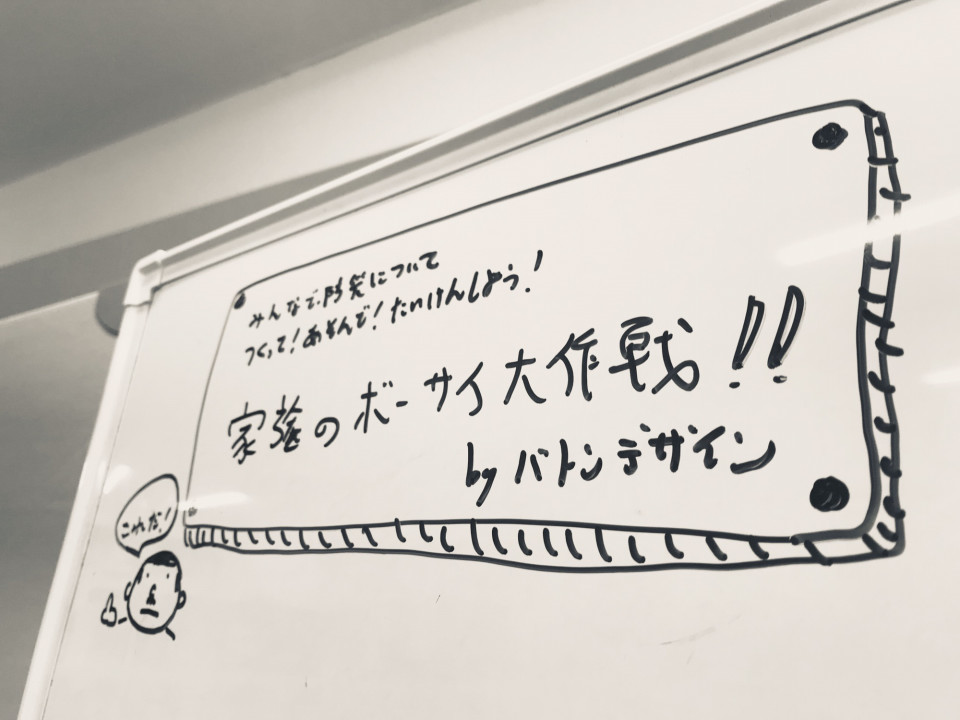 みんなで防災について
つくって!あそんで!たいけんしよう!
家族のボーサイ大作戦!!
by バトンデザイン
これだ!